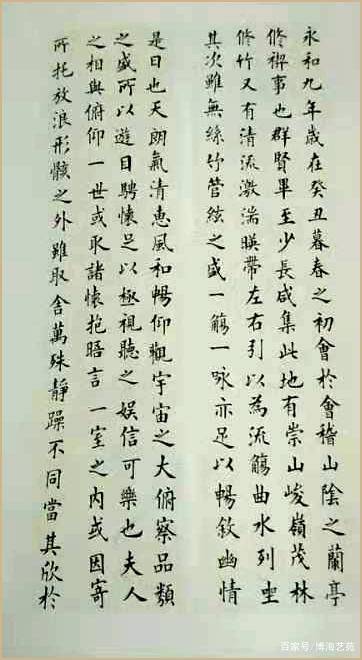 永和九年歲在癸丑暮春之初會於會稽山陰之蘭亭
修禊事也群賢畢至少長咸集此地有崇山峻嶺茂林
修竹又有清流激湍暎帶左右引以為流觴曲水列坐
其次雖無絲竹管絃之盛一觴一咏亦足以暢敘幽情
是日也天朗氣清惠風和暢仰觀宇宙之大俯察品類
之盛所以遊目騁懷足以極視聽之娛信可樂也夫人
之相與俯仰一世或取諸懷抱晤言一室之內或因寄
所托放浪形骸之外雖取舍萬殊靜躁不同當其欣於
百家号/博海艺苑